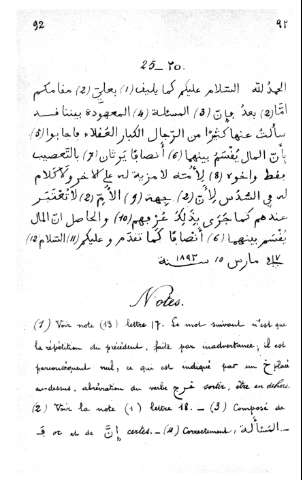 92 ٩٢
25_٢٥.
الحمد لله السلام عليكم كما يليف (1) بعلي (2) مقامكم
امّا (2) بعد فإن (3) المسئلة (4) المعهودة بيننا فد
سألت عنها كثيرا من الرجال الكبار العفلاء فاجابوا (5)
بأن المال يفسم بينهما (6) أنصافا يرثان (7) بالتعصيب
بفط واخوه (8) لأمته لا مزية له على الاخر ولا كلام
له في السدس لأن (2) جهة (9) الأم (2) لا تعتبر
عندهم كما جرى بذلك عرفهم (10) والحاصل ان المال
يفسم بينهما (6) أنصافا كما تفدم و عليكم (11) السلام (12)
في ١٥ مارس سنة ١٨٩٣
Notes.
(1) Voir note (13) lettre 17. Le mot suivant n'est que
la répétition du précédent, faite par inadvertance; il est
parconséquent nul, ce qui est indiqué par un خ placé
au-dessus, abréviation du verbe خرج sortir, être en dehors.
(2) Voir la note (1) lettre 18. _ (3) Composé de
فَ or et de إنَّ certes. _ (4) Correctement, المسألة. _